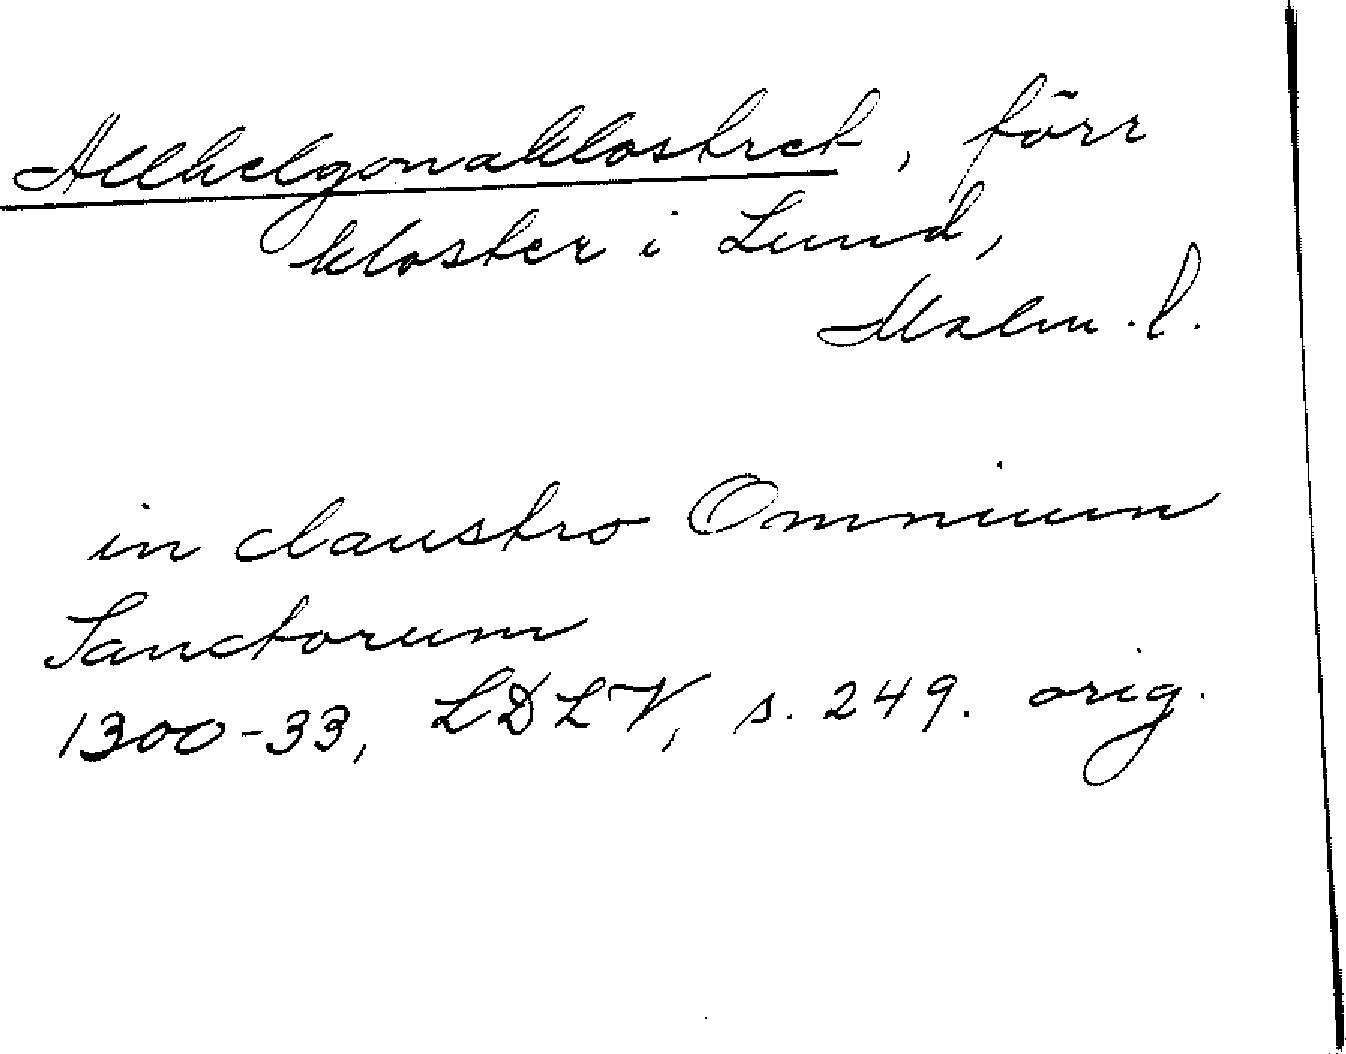 Allhelgonaklostret, förr
kloster i Lund,
Malm. l.
in claustro Omnium
Sanctorum
1300-33, LDLV, s. 249. orig.